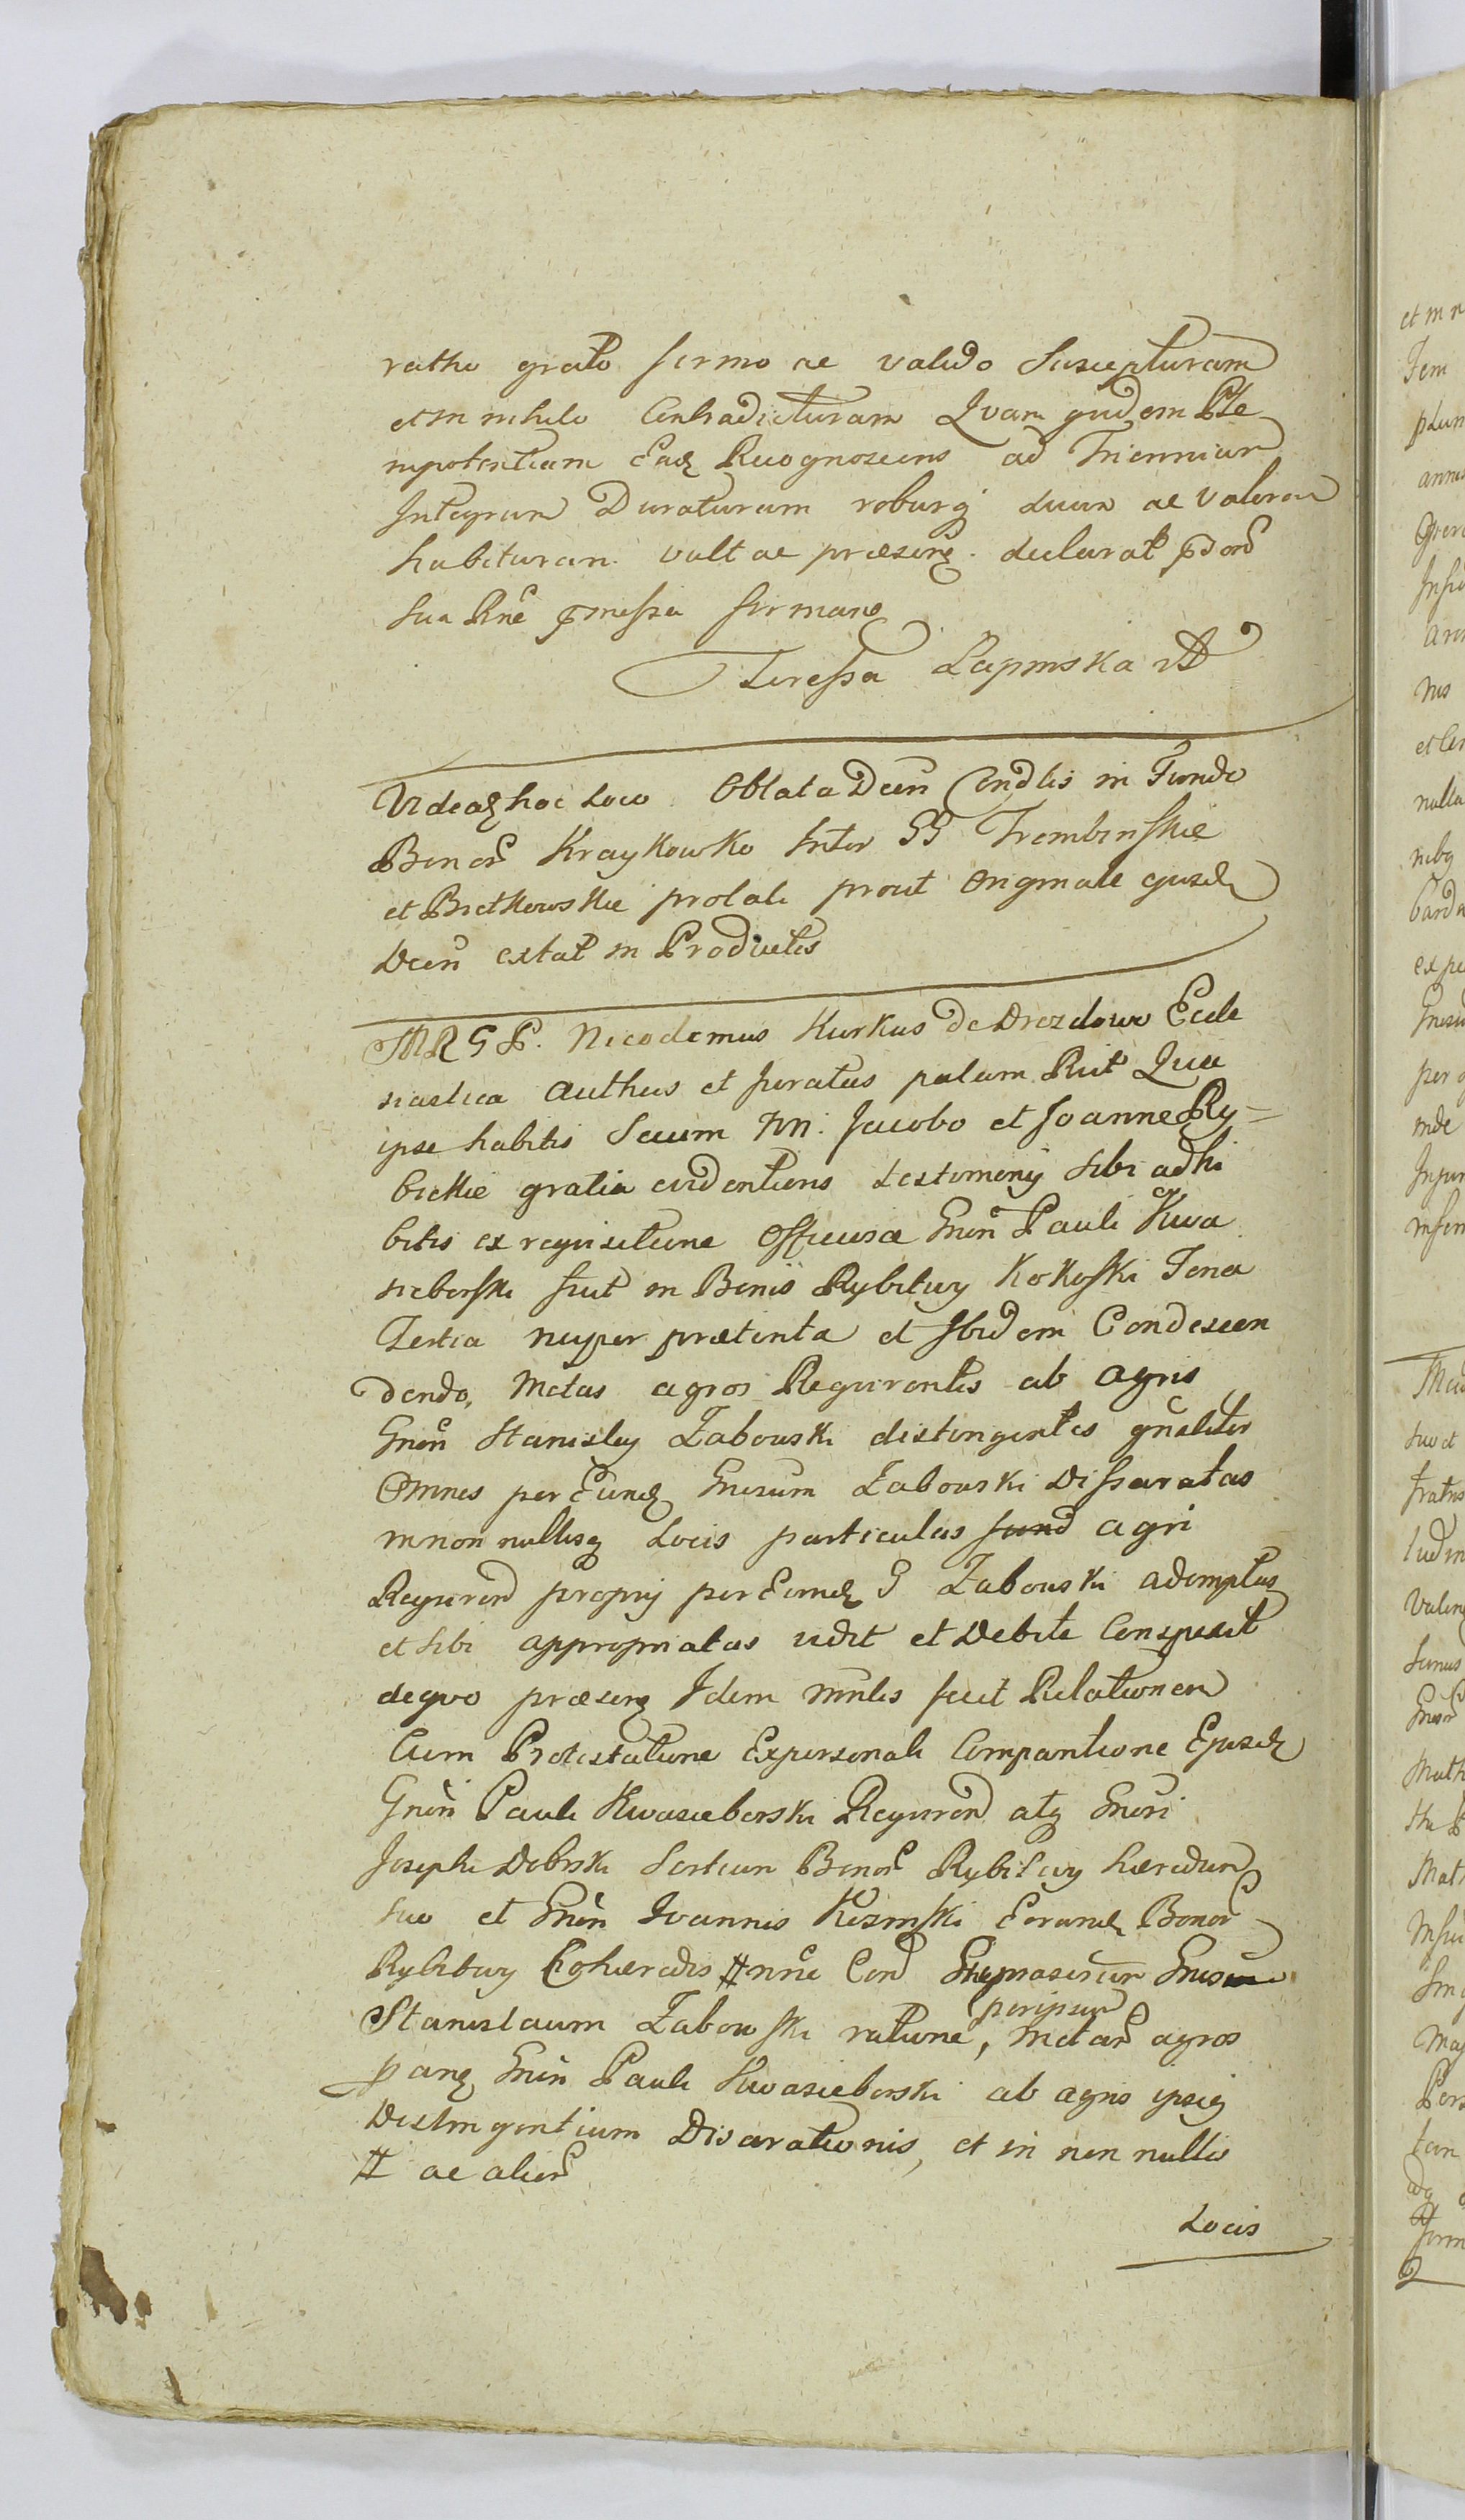 ratho grato firmo ac valido Suscepturam
et in nihilo Contradicturam Quam quidem Ple
nipotentiam Eadz Recognoscens ad Triennium
Integrum Duraturam roburqz suum ac valorem
habituram vult ac præsenz declarat
sua Rne firmanz
Teressa Łapinska
Videaz hoc Loco Oblata Decii Condlis in Fundo
Bonor Kraykowko Inter GG Trembinskie
et Bietkowskie prolati prout Originale ejusdz
Decii extat in Productis
MRGP. Nicodemus Kurkus De Drozdowo Eccle
siastica Authus et Juratus palam Rit Quia
ipse habitis Secum NN: Jacobo et Joanne Ry=
bickie gratia evidentioris testimonij sibi adhi
bitis ex requisitione Officiosa Gnen Pauli Kwa
sieborski fuit in Bonis Rybitwy Kokoszki Feria
Tertia nuper præterita et Ibidem Condescen
dendo, Metas agros Requirentis ab agris
Gnen Stanislai Zabowski distingentes gnaliter
Omnes per Eundz Gnesum Zabowski Dissaratas
in non nullisqz Locis particulas fund agri
Requiren proprij per Eundz G Zabowski ademptas
et sibi appropriatas vidit et Debite Conspexit
de quo præsenz Idem Mnlis fecit Relationem
Cum Protestatione Ex personali Comparitione Ejusdz
Gnen Pauli Kwasieborski Requiren atqz Gnesi
Josephi Dobrski Sortium Bonor Rybitwy hæredum
suo et Gnen Joannis Kosinski Eorundz Bonor
Rybitwy Cohæredis # nne Con Gnesum
Stanislaum Zabowski ratione, Metar agros
per ipsum
panz Gnen Pauli Kwasieborski ab agris ipsiqz
Distingentium Disarationis, et in non nullis
# ac alior
Locis